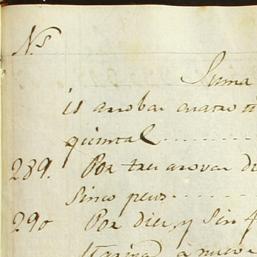 N.s
Suma
is arrobas cuatro
quintal
289. Por tres arrovas di
Sinco pesos
290 Por diez, y Sin
Harina, a nueve